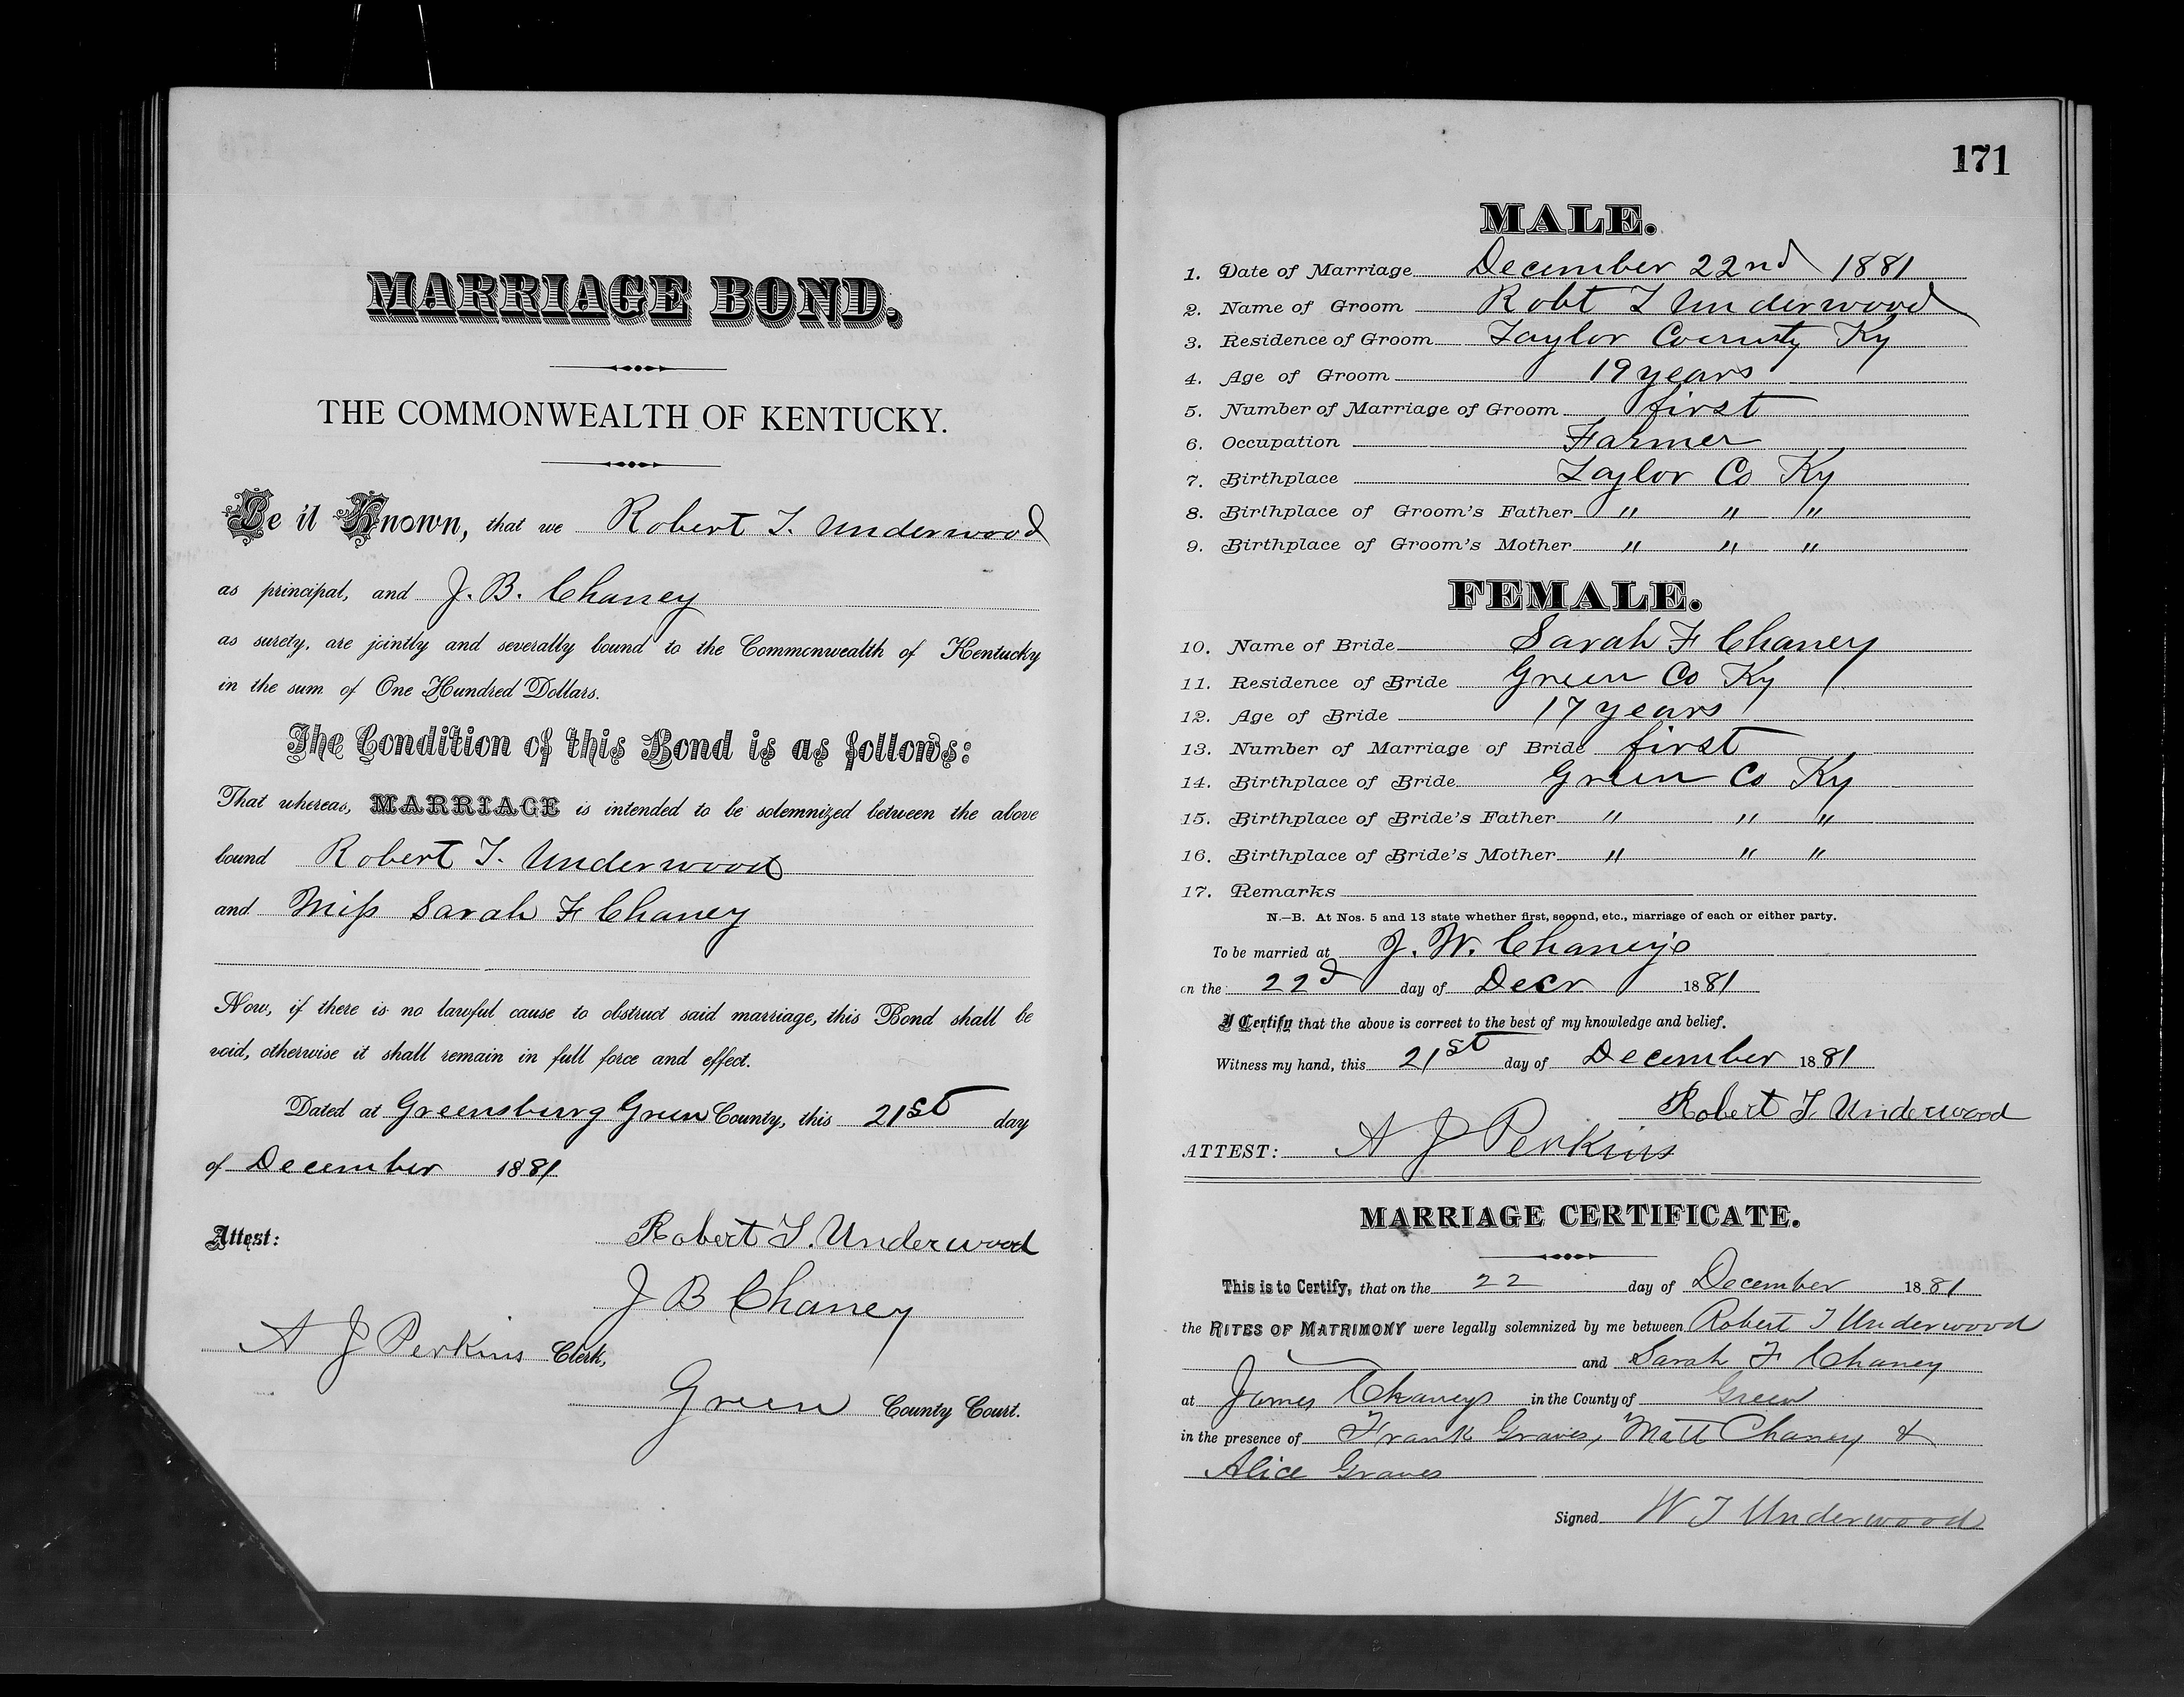 MARRIAGE BOND.
THE COMMONWEALTH OF KENTUCKY.
Be it Known, that we Robert T. Underwood
as principal, and J. B. Chaney
as surety, are jointly and severally bound to the Commonwealth of Kentucky
in the sum of One Hundred Dollars.
The Condition of this Bond is as follows:
That whereas, MARRIAGE is intended to be solemnized between the above
bound Robert T. Underwood
and Miss Sarah F Chaney
Now, if there is no lawful cause to obstruct said marriage, this Bond shall be
void, otherwise it shall remain in full force and effect.
Dated at Greensburg Green County, this 21st day
of December 1881
Attest: Robert T. Underwood
J B Chaney
A J Perkins Clerk,
Green County Court.
171
MALE.
1. Date of Marriage December 22nd 1881
2. Name of Groom Robt T Underwood
3. Residence of Groom Taylor County Ky
4. Age of Groom 19 years
5. Number of Marriage of Groom first
6. Occupation Farmer
7. Birthplace Taylor Co Ky
8. Birthplace of Groom's Father " " "
9. Birthplace of Groom's Mother " " "
FEMALE.
10. Name of Bride Sarah F Chaney
11. Residence of Bride Green Co Ky
12. Age of Bride 17 years
13. Number of Marriage of Bride first
14. Birthplace of Bride Green Co Ky
15. Birthplace of Bride's Father " " "
16. Birthplace of Bride's Mother " " "
17. Remarks
N.—B. At Nos. 5 and 13 state whether first, second, etc., marriage of each or either party.
To be married at J. W. Chaney's
on the 22d day of Decr 1881
I Certify that the above is correct to the best of my knowledge and belief.
Witness my hand, this 21st day of December 1881
Robert T. Underwood
ATTEST: A J Perkins
MARRIAGE CERTIFICATE.
This is to Certify, that on the 22 day of December 1881
the RITES OF MATRIMONY were legally solemnized by me between Robert T Underwood
and Sarah F Chaney
at James Chaneys in the County of Green
in the presence of Frank Graves, Matt Chaney &
Alice Graves
Signed W T Underwood